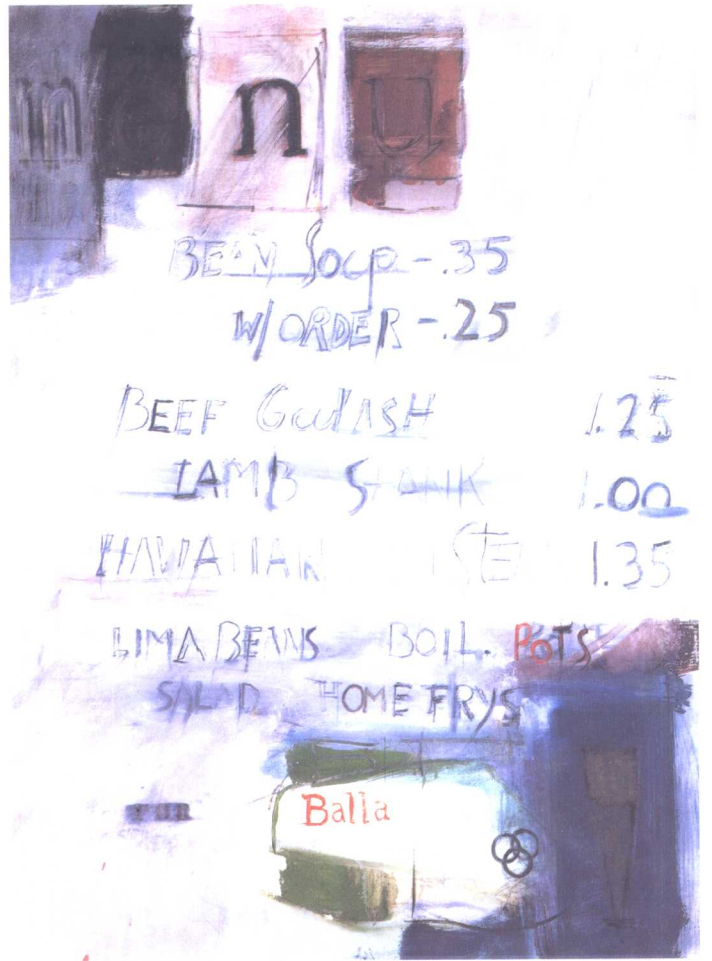 menu
BEAN Soup - .35
W/ ORDER - .25
BEEF GoulASH 1.25
LAMB SHANK 1.00
HAWAIIAN STE 1.35
LIMA BEANS BOIL. POTS
SALAD HOME FRYS
FOR
Balla